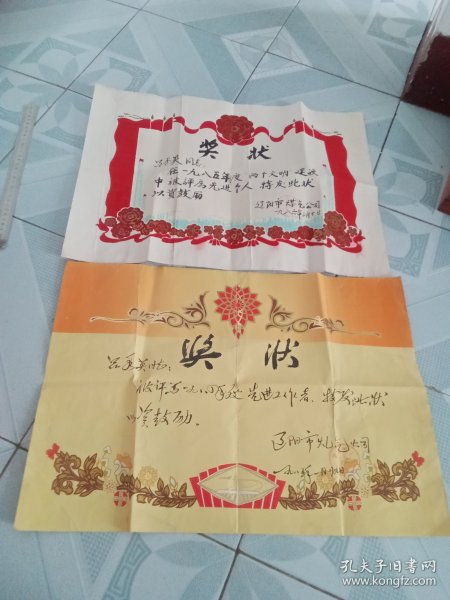 奖状
同志
在一九八五年度两个文明建设
中被评为先进个人特发此状
以资鼓励
辽阳市煤气公司
一九八六年
奖状
被评为一九八四年度先进工作者,特发此状
以资鼓励。
辽阳市煤气公司
一九八五年一月
孔夫子旧书网
www.kongfz.com